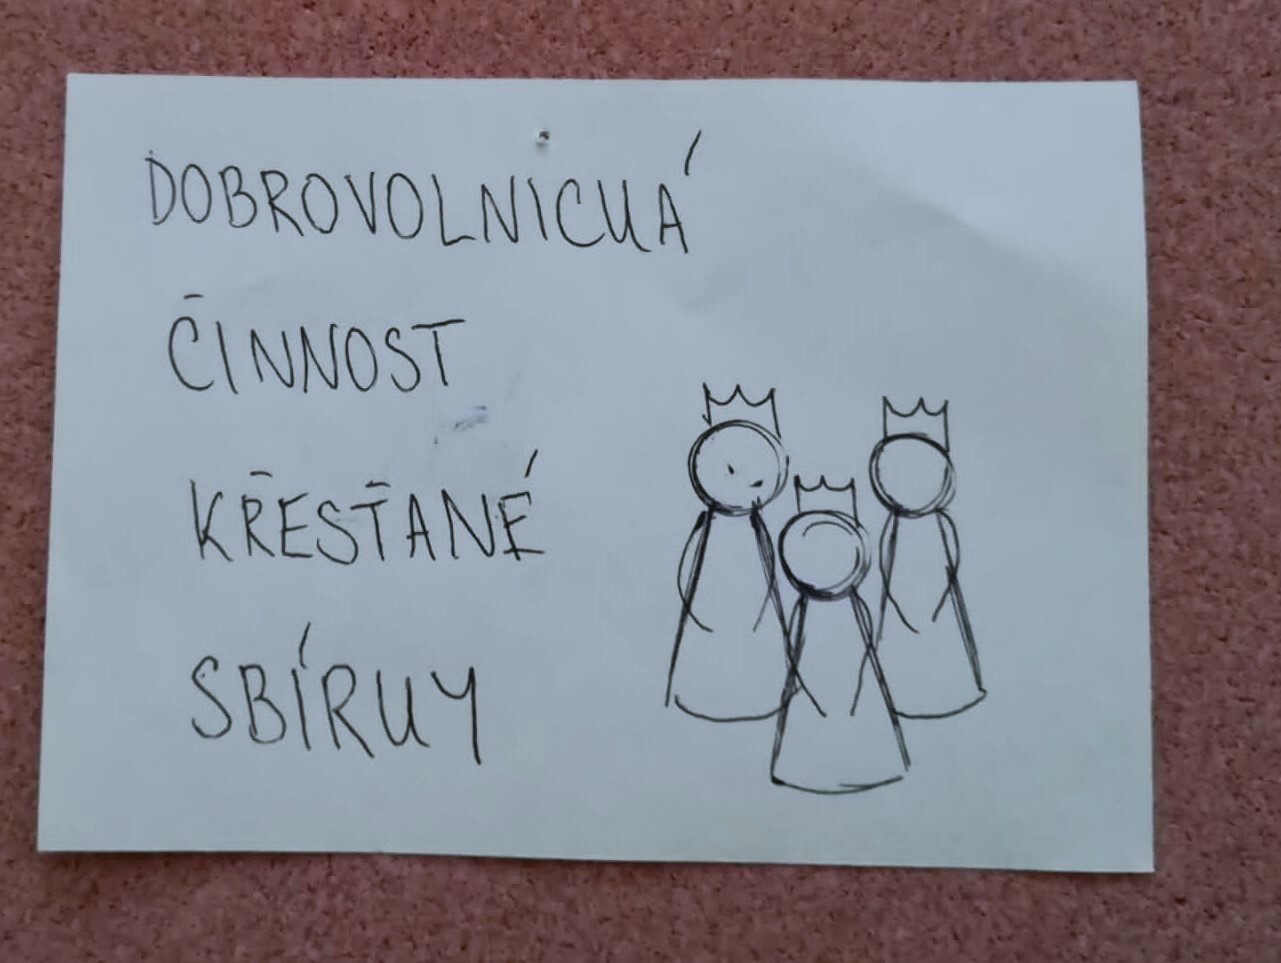 DOBROVOLNICKÁ
ČINNOST
KŘESŤANÉ
SBÍRKY